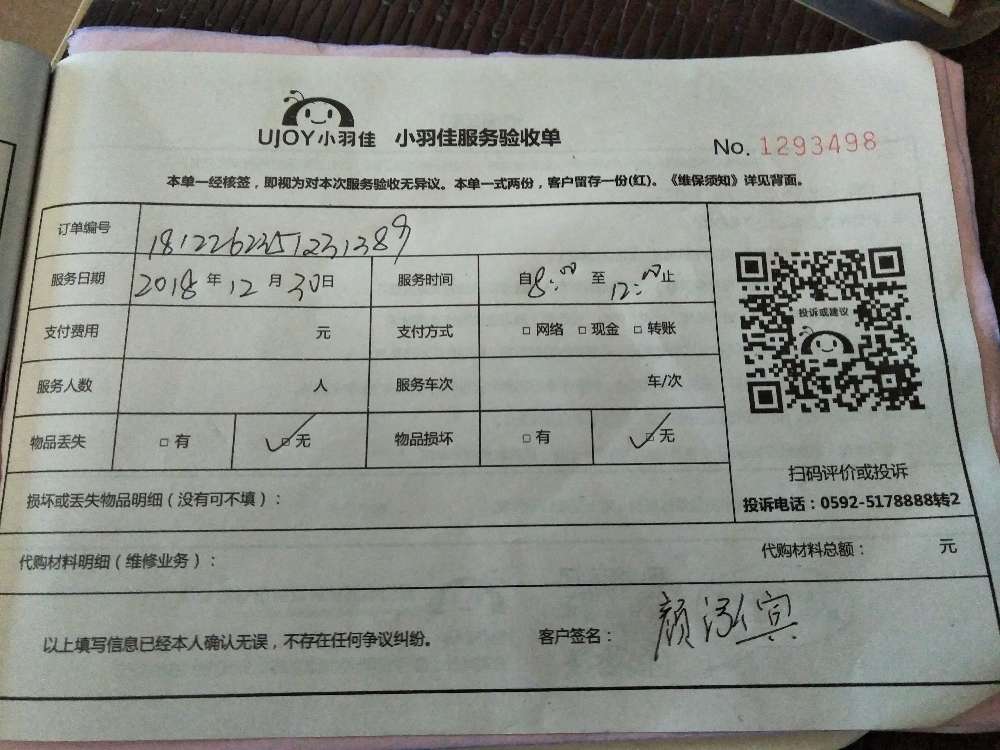 UJOY小羽佳 小羽佳服务验收单
No. 1293498
本单一经核签，即视为对本次服务验收无异议。本单一式两份，客户留存一份(红)。《维保须知》详见背面。
订单编号 1812262351231389
服务日期 2018年12月30日 服务时间 自8:00至12:00止
投诉或建议
支付费用 元 支付方式 □网络 □现金 □转账
服务人数 人 服务车次 车/次
物品丢失 □有 ✓□无 物品损坏 □有 ✓□无
扫码评价或投诉
投诉电话：0592-5178888转2
损坏或丢失物品明细（没有可不填）：
代购材料明细（维修业务）： 代购材料总额： 元
以上填写信息已经本人确认无误，不存在任何争议纠纷。 客户签名：颜泓宾